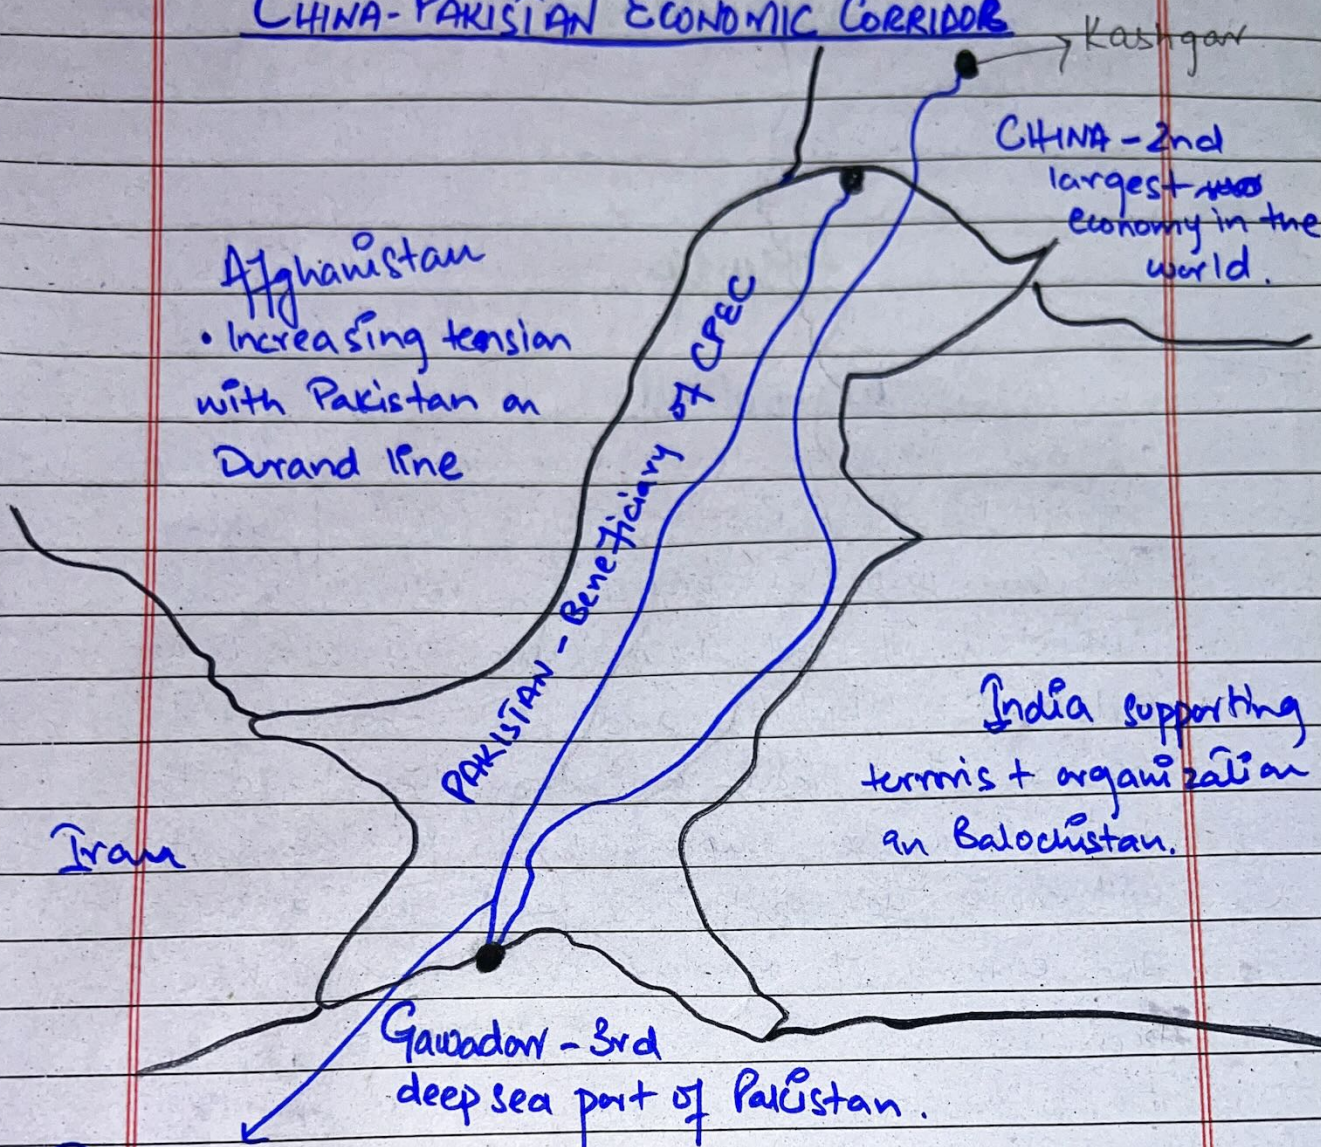 CHINA-PAKISTAN ECONOMIC CORRIDOR
Kashgar
CHINA - 2nd
largest
economy in the
world.
Afghanistan
• Increasing tension
with Pakistan on
Durand line
PAKISTAN - Beneficiary of CPEC
India supporting
terrorist organization
in Balochistan.
Iran
Gawadar - 3rd
deep sea port of Pakistan.